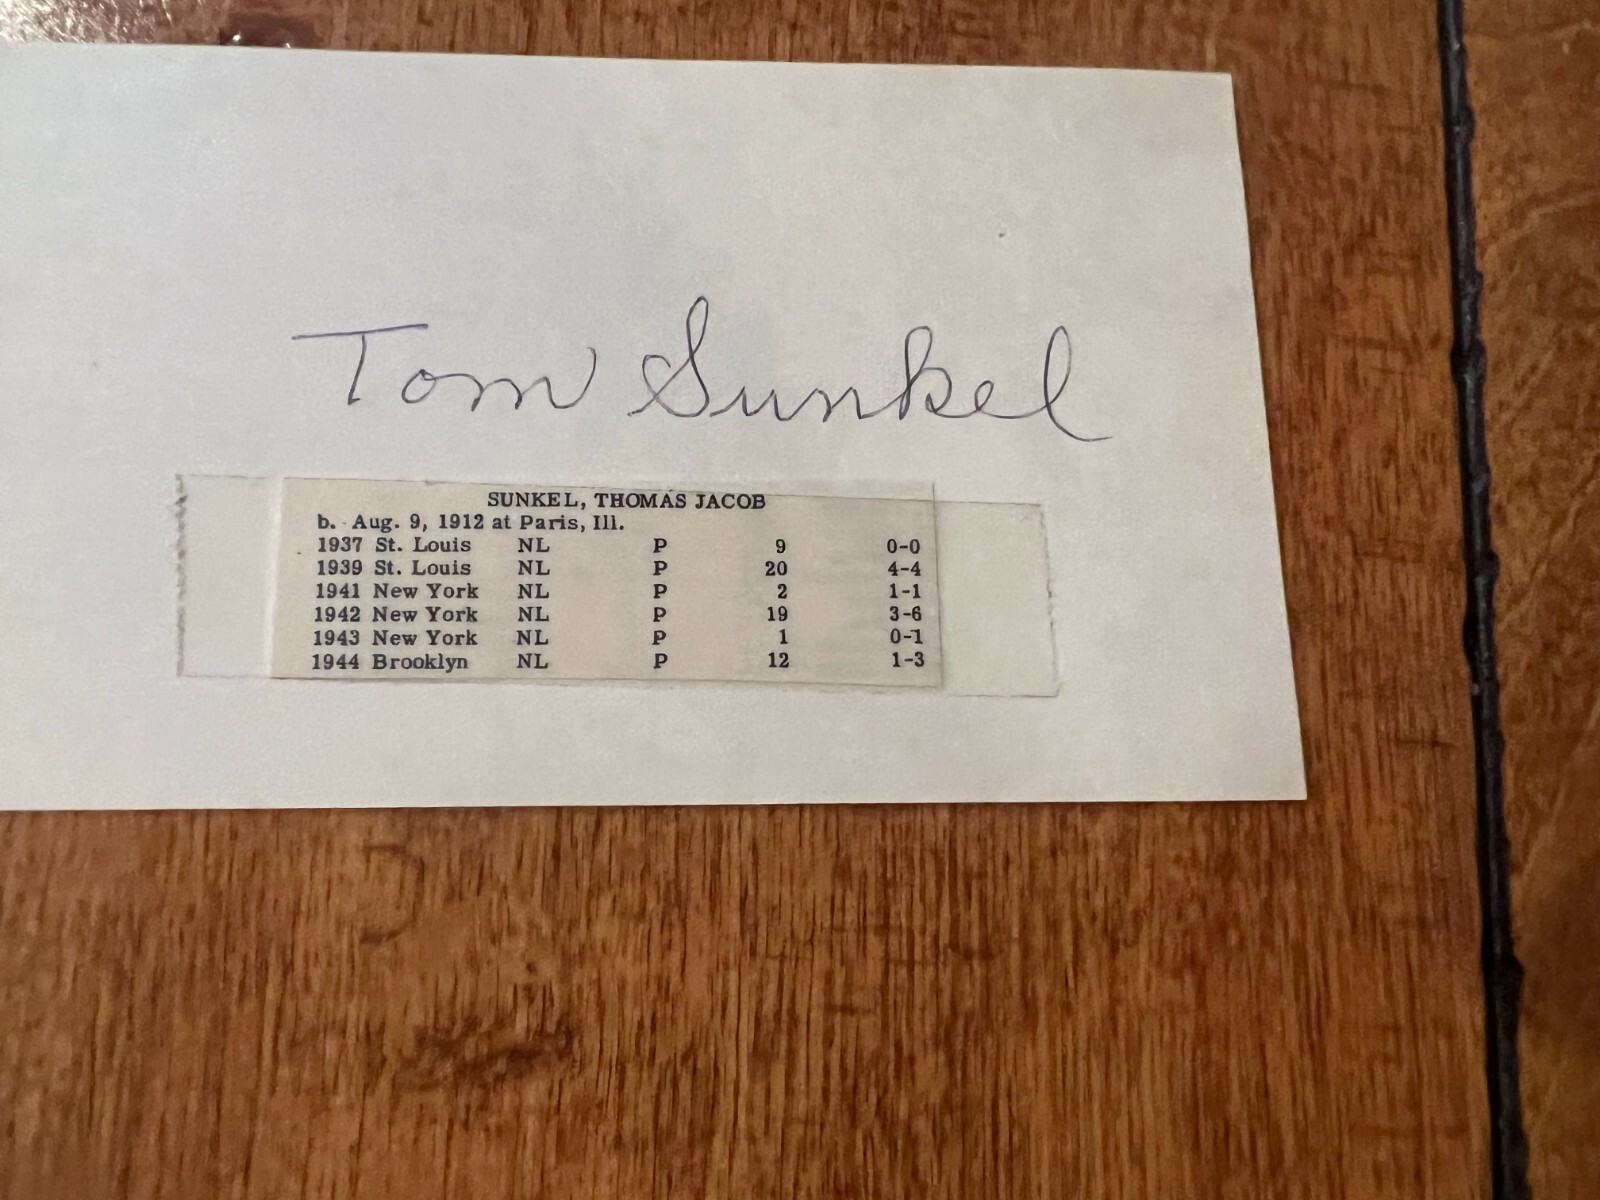 Tom Sunkel
SUNKEL, THOMAS JACOB
b. Aug. 9, 1912 at Paris, Ill.
1937 St. Louis NL P 9 0-0
1939 St. Louis NL P 20 4-4
1941 New York NL P 2 1-1
1942 New York NL P 19 3-6
1943 New York NL P 1 0-1
1944 Brooklyn NL P 12 1-3